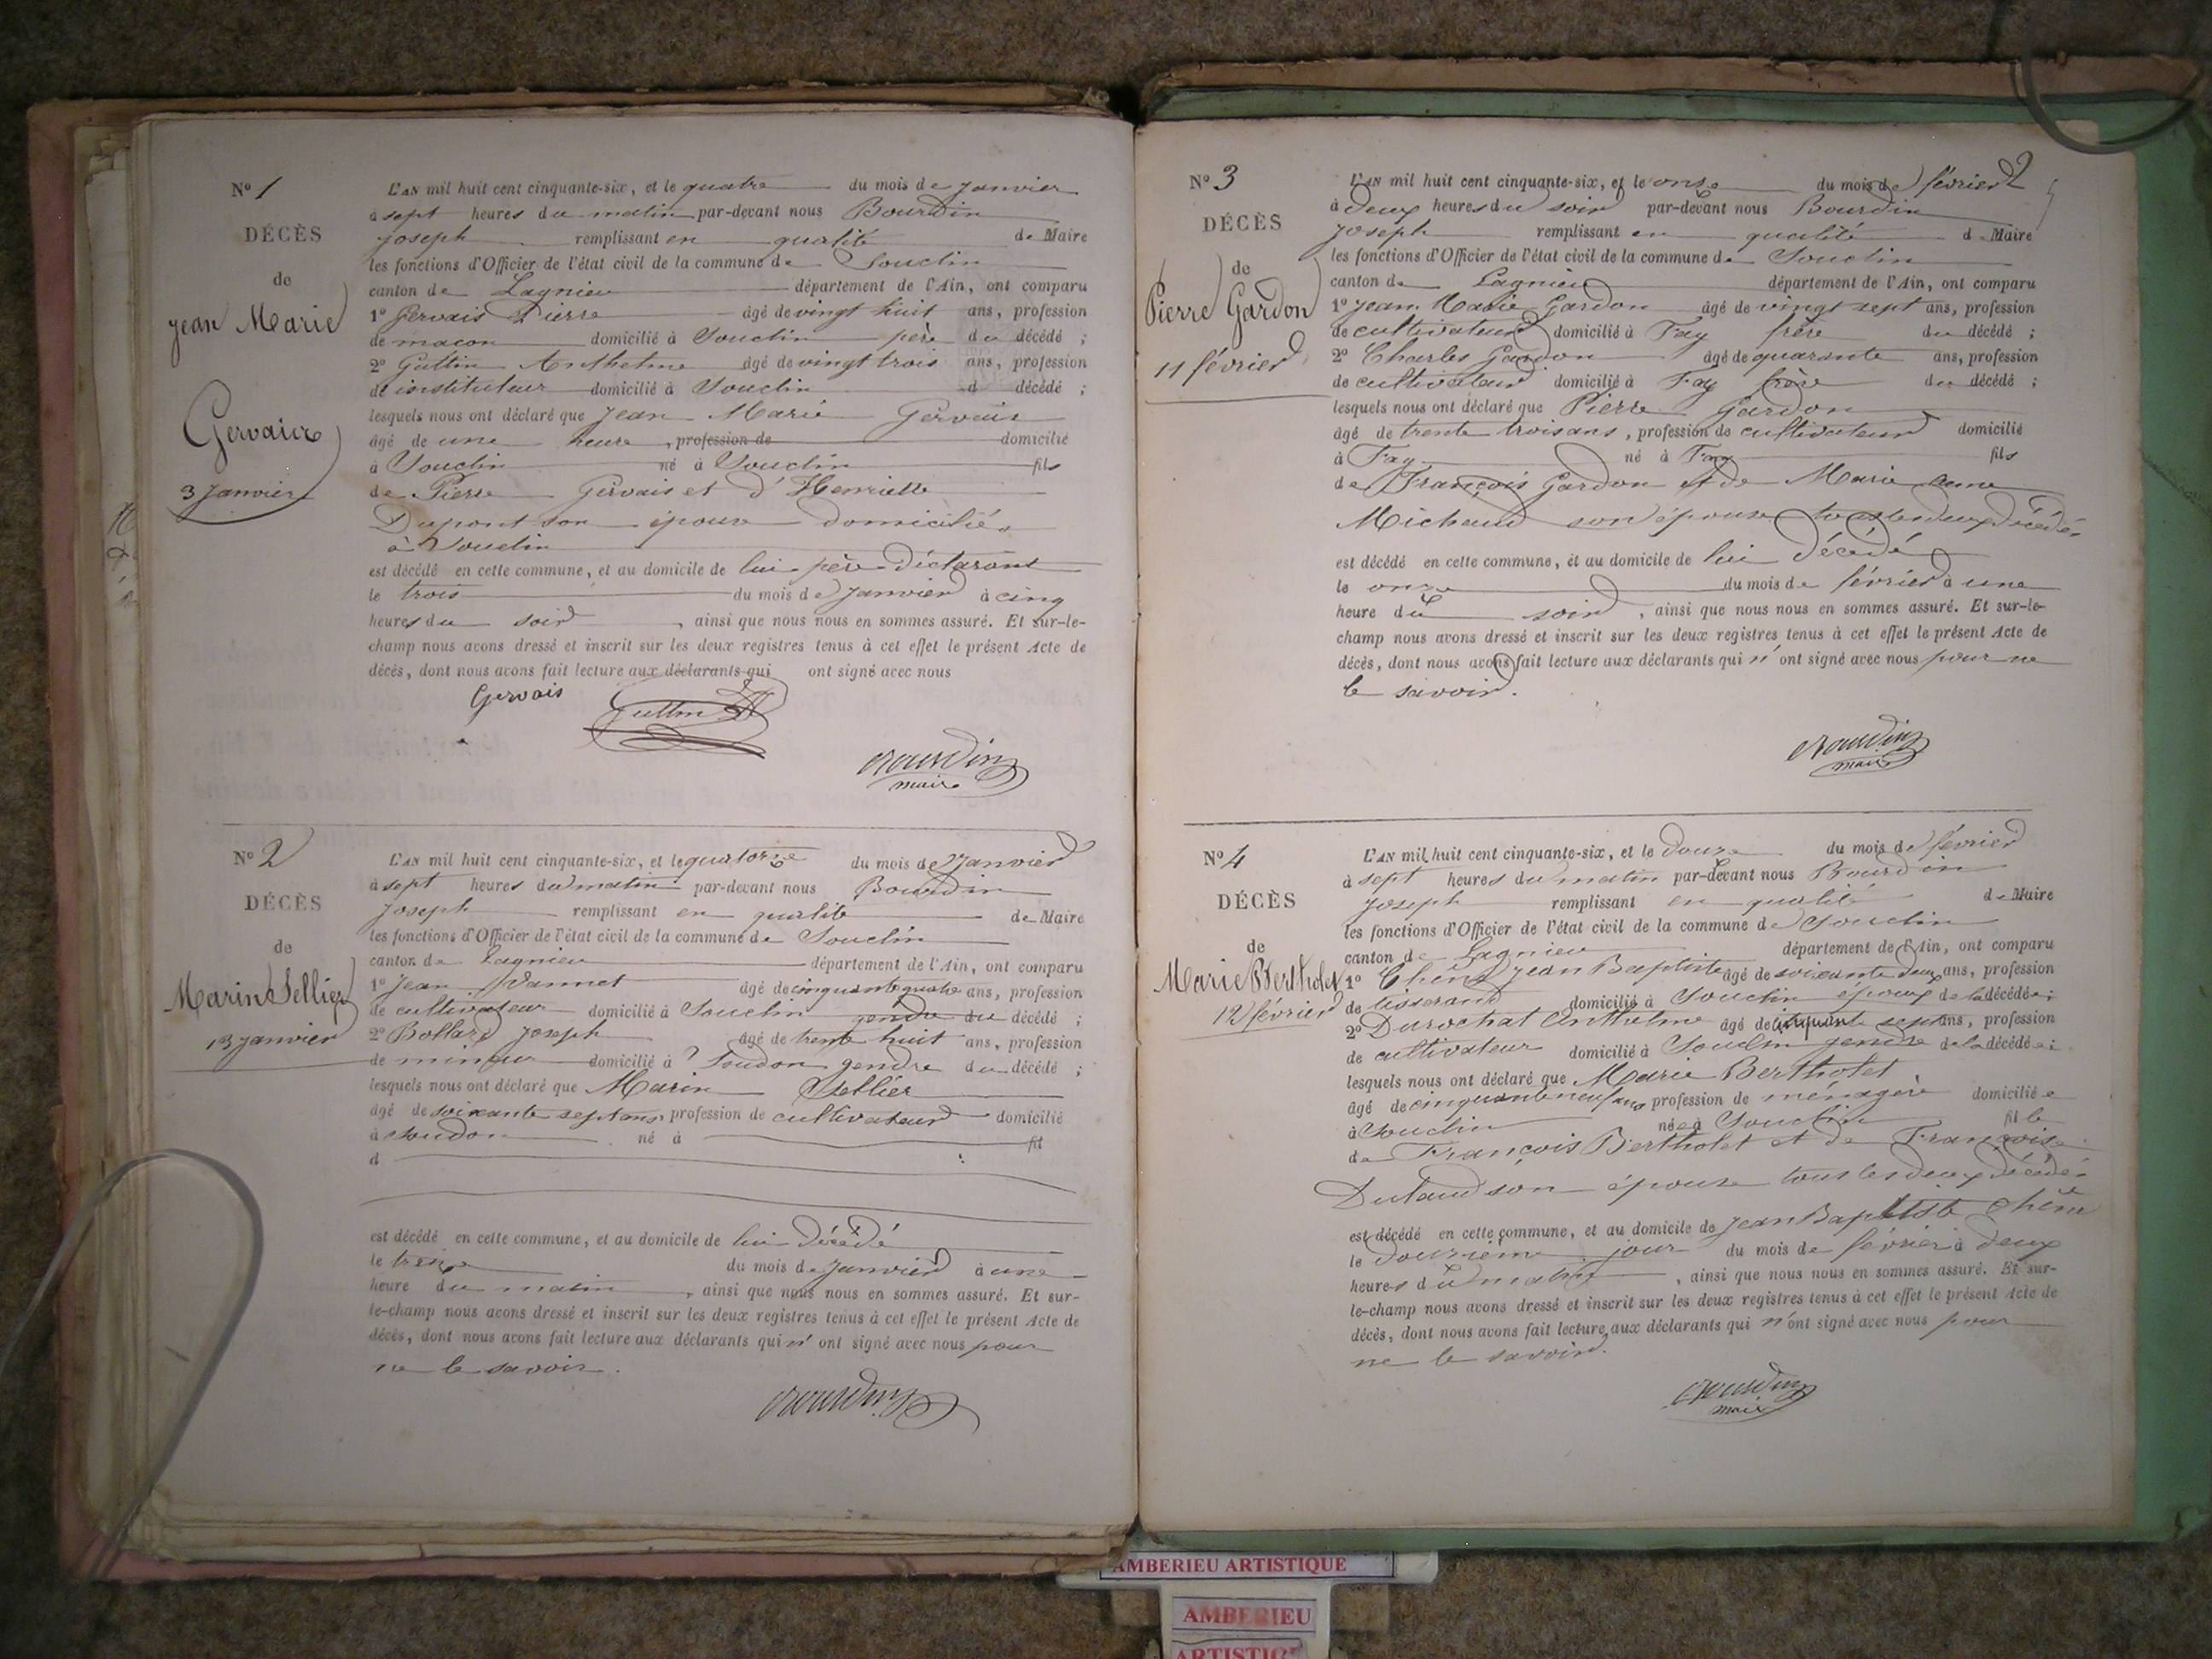 Nº 1
DÉCÈS
de
Jean Marie
Gervais
3 Janvier
L'AN mil huit cent cinquante-six, et le quatre du mois de Janvier
à sept heures du matin par-devant nous Bourdin
Joseph remplissant en qualité de Maire
les fonctions d'Officier de l'état civil de la commune de Souclin
canton de Lagnieu département de l'Ain, ont comparu
1º Gervais Pierre âgé de vingt huit ans, profession
de macon domicilié à Souclin père du décédé ;
2º Guttin Anthelme âgé de vingt trois ans, profession
de instituteur domicilié à Souclin d décédé ;
lesquels nous ont déclaré que Jean Marie Gervais
âgé de une heure, profession de domicilié
à Souclin né à Souclin fils
de Pierre Gervais et d'Henriette
Dupont son épouse domiciliés
à Souclin
est décédé en cette commune, et au domicile de lui père déclarant
le trois du mois de Janvier à cinq
heures du soir, ainsi que nous nous en sommes assuré. Et sur-le-
champ nous avons dressé et inscrit sur les deux registres tenus à cet effet le présent Acte de
décès, dont nous avons fait lecture aux déclarants qui ont signé avec nous
Gervais
Guttin
Bourdin
maire
Nº 2
DÉCÈS
de
Marin Sellier
13 Janvier
L'AN mil huit cent cinquante-six, et le quatorze du mois de Janvier
à sept heures du matin par-devant nous Bourdin
Joseph remplissant en qualité de Maire
les fonctions d'Officier de l'état civil de la commune de Souclin
canton de Lagnieu département de l'Ain, ont comparu
1º Jean Vannet âgé de cinquante quatre ans, profession
de cultivateur domicilié à Souclin gendre du décédé ;
2º Bollard Joseph âgé de trente huit ans, profession
de mineur domicilié à Soudon gendre du décédé ;
lesquels nous ont déclaré que Marin Sellier
âgé de soixante sept ans, profession de cultivateur domicilié
à Soudon né à fil
d
est décédé en cette commune, et au domicile de lui décédé
le treize du mois de Janvier à une
heure du matin, ainsi que nous nous en sommes assuré. Et sur-
le-champ nous avons dressé et inscrit sur les deux registres tenus à cet effet le présent Acte de
décès, dont nous avons fait lecture aux déclarants qui n'ont signé avec nous pour
ne le savoir.
Bourdin
2
Nº 3
DÉCÈS
de
Pierre Gardon
11 février
L'AN mil huit cent cinquante-six, et le onze du mois de février
à deux heures du soir par-devant nous Bourdin
Joseph remplissant en qualité de Maire
les fonctions d'Officier de l'état civil de la commune de Souclin
canton de Lagnieu département de l'Ain, ont comparu
1º Jean Marie Gardon âgé de vingt sept ans, profession
de cultivateur domicilié à Fay frère du décédé ;
2º Charles Gardon âgé de quarante ans, profession
de cultivateur domicilié à Fay frère du décédé ;
lesquels nous ont déclaré que Pierre Gardon
âgé de trente trois ans, profession de cultivateur domicilié
à Fay né à Fay fils
de François Gardon et de Marie anne
Michaud son épouse tous les deux décédés
est décédé en cette commune, et au domicile de lui décédé
le onze du mois de février à une
heure du soir, ainsi que nous nous en sommes assuré. Et sur-le-
champ nous avons dressé et inscrit sur les deux registres tenus à cet effet le présent Acte de
décès, dont nous avons fait lecture aux déclarants qui n'ont signé avec nous pour ne
le savoir.
Bourdin
maire
Nº 4
DÉCÈS
de
Marie Bertholet
12 février
L'AN mil huit cent cinquante-six, et le douze du mois de février
à sept heures du matin par-devant nous Bourdin
Joseph remplissant en qualité de Maire
les fonctions d'Officier de l'état civil de la commune de Souclin
canton de Lagnieu département de l'Ain, ont comparu
1º Chêne Jean Baptiste âgé de soixante deux ans, profession
de tisserand domicilié à Souclin époux de la décédée ;
2º Durochat Anthelme âgé de cinquante sept ans, profession
de cultivateur domicilié à Souclin gendre de la décédée ;
lesquels nous ont déclaré que Marie Bertholet
âgé de cinquante neuf ans profession de ménagère domiciliée
à Souclin née à Souclin fille
de François Bertholet et de Françoise
Dutaud son épouse tous les deux décédés
est décédé en cette commune, et au domicile de Jean Baptiste Chêne
le douzième jour du mois de février à deux
heures du matin, ainsi que nous nous en sommes assuré. Et sur-
le-champ nous avons dressé et inscrit sur les deux registres tenus à cet effet le présent Acte de
décès, dont nous avons fait lecture aux déclarants qui n'ont signé avec nous pour
ne le savoir.
Bourdin
maire
AMBERIEU ARTISTIQUE
AMBERIEU
ARTISTIQ